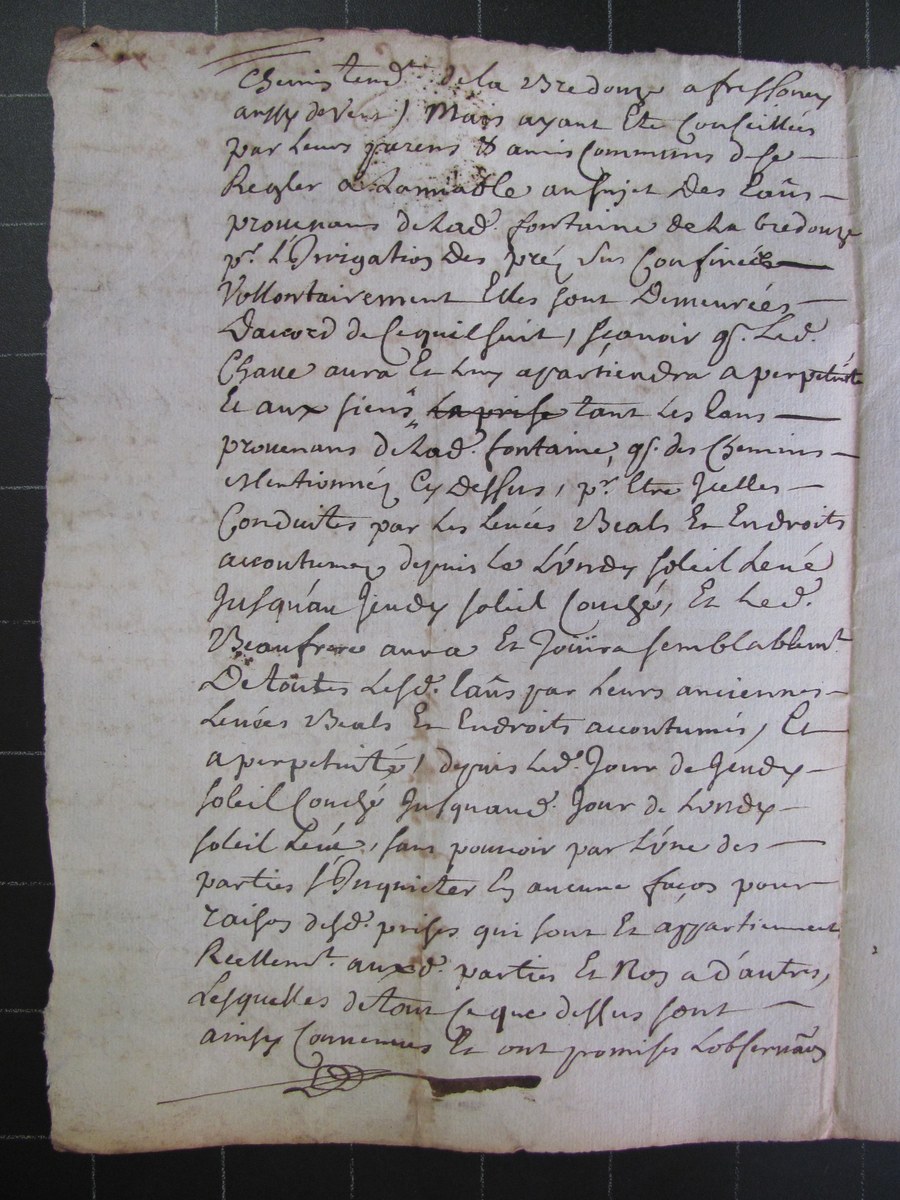 Chemis tend.t de la Bredouze a fressoney
aussy de vent / Mais ayant Eté Conseillées
par Leurs parens & amis Communs de se
Regler a Lamiable au sujet Des Eaûs
provenans de Lad. fontaine de La bredouze
pr. L'Irrigation Des préz sus Confinées
Vollontairement Elles sont Demeurées
Daccord de Cequil suit, sçavoir q. Led.
Chave aura Et Luy apartiendra a perpetuité
Et aux siens La prise tant Les Eaus
provenans de Lad. fontaine, q. des Chemins
Mentionnéz Cy Dessus, pr. Etre Jcelles
Conduites par Les Levées Beals Et Endroits
accoutumez depuis Le Lundy soleil Levé
Jusqu'au Jeudy soleil Couché, Et Led.
Beaufrere aura Et Joüira semblablemt.
De toutes Lesd. Eaûs par Leurs anciennes
Levées Beals Et Endroits accoutumés, Et
a perpetuité, depuis Led. Jour de Jeudy
soleil Couché Jusquaud. Jour de Lundy
soleil Levé, sans pouvoir par L'une des
parties s'Inquieter En aucune façon pour
raison desd. prises qui sont Et appartiennent
Reellemt. auxd. parties Et Non a d'autres,
Lesquelles de tout Ce que dessus sont
ainsy Convenues Et ont promises L'observãon